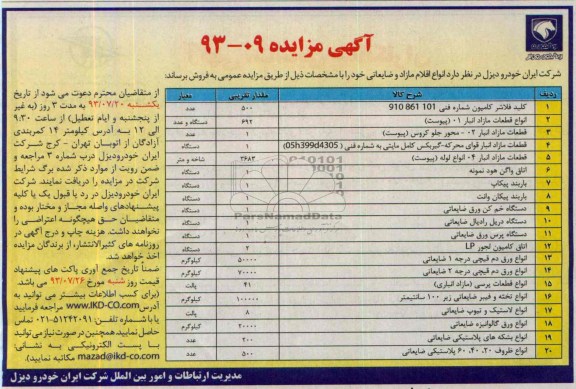 آگهی مزایده ۰۹-۹۳
شرکت ایران خودرو دیزل در نظر دارد انواع اقلام مازاد و ضایعاتی خود را با مشخصات ذیل از طریق مزایده عمومی به فروش برساند:
ردیف شرح کالا مقدار تقریبی معیار
۱ کلید فلاشر کامیون شماره فنی 101 861 910 ۵۰۰ عدد
۲ انواع قطعات مازاد انبار ۰۱ (پیوست) ۶۹۲ دستگاه و عدد
۳ قطعات مازاد انبار ۰۲ - محور جلو کروس (پیوست) ۱ عدد
۴ قطعات مازاد انبار قوای محرکه-گیربکس کامل مایتی به شماره فنی (05h399d4305) ۱ دستگاه
۵ قطعات مازاد انبار ۰۴ انواع لوله (پیوست) ۳۶۸۳ شاخه و متر
۶ اتاق واگن هود نمونه ۱ دستگاه
۷ باربند پیکاپ ۱ دستگاه
۸ باربند پیکان وانت ۱ دستگاه
۹ دستگاه خم کن ورق ضایعاتی ۱ دستگاه
۱۰ دستگاه دریل رادیال ضایعاتی ۱ دستگاه
۱۱ دستگاه پرس ورق ضایعاتی ۱ دستگاه
۱۲ اتاق کامیون لجور LP ۲ دستگاه
۱۳ انواع ورق دم قیچی درجه ۱ ضایعاتی ۵۰۰۰۰ کیلوگرم
۱۴ انواع ورق دم قیچی درجه ۲ ضایعاتی ۷۰۰۰۰ کیلوگرم
۱۵ انواع قطعات پرسی (مازاد انباری) ۴۱ پالت
۱۶ انواع تخته و فیبر ضایعاتی زیر ۱۰۰ سانتیمتر ۱۰۰۰۰۰ کیلوگرم
۱۷ انواع لاستیک و تیوپ ضایعاتی ۸ پالت
۱۸ انواع ورق گالوانیزه ضایعاتی ۲۰۰۰۰ کیلوگرم
۱۹ انواع بشکه های پلاستیکی ضایعاتی ۲۰۰ عدد
۲۰ انواع ظروف ۲۰، ۴۰، ۶۰ پلاستیکی ضایعاتی ۵۰۰ عدد
از متقاضیان محترم دعوت می شود از تاریخ
یکشنبه ۹۳/۰۷/۲۰ به مدت ۳ روز (به غیر
از پنجشنبه و ایام تعطیل) از ساعت ۹:۳۰
الی ۱۲ به آدرس کیلومتر ۱۴ کمربندی
آزادگان از اتوبان تهران - کرج شرکت
ایران خودرودیزل درب شماره ۳ مراجعه و
ضمن رویت از موارد ذکر شده برگ شرایط
شرکت در مزایده را دریافت نمایند. شرکت
ایران خودرودیزل در رد یا قبول یک یا کلیه
پیشنهادهای واصله مجاز و مختار بوده و
متقاضیان حق هیچگونه اعتراضی را
نخواهند داشت. هزینه چاپ و درج آگهی در
روزنامه های کثیرالانتشار، از برندگان مزایده
اخذ خواهد شد.
ضمناً تاریخ جمع آوری پاکت های پیشنهاد
قیمت روز شنبه مورخ ۹۳/۰۷/۲۶ می باشد.
(برای کسب اطلاعات بیشتر می توانید به
آدرس www.IKD-CO.com مراجعه فرمایید
یا با شماره تلفن: ۵۱۲۴۲۰۹۱-۰۲۱ تماس
حاصل نمایید. همچنین در صورت نیاز می توانید
با پست الکترونیکی به نشانی:
mazad@ikd-co.com مکاتبه نمایید).
ParsNamadData
مدیریت ارتباطات و امور بین الملل شرکت ایران خودرو دیزل